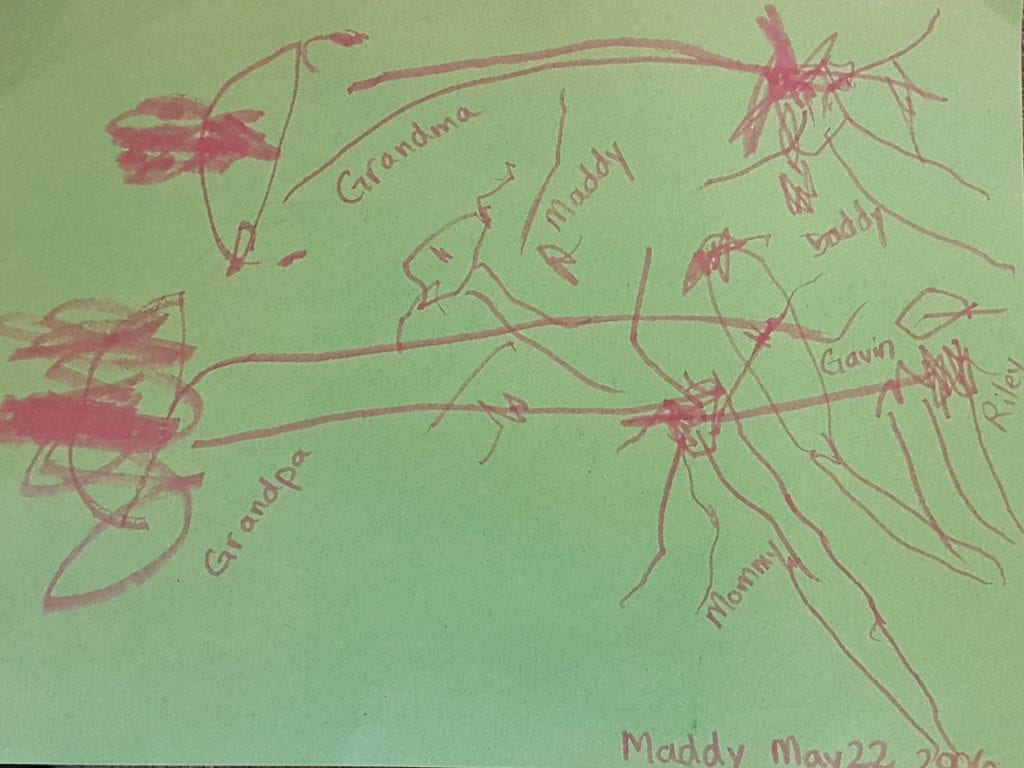 Grandma
Maddy
Daddy
Gavin
Riley
Grandpa
Mommy
Maddy May 22 2006